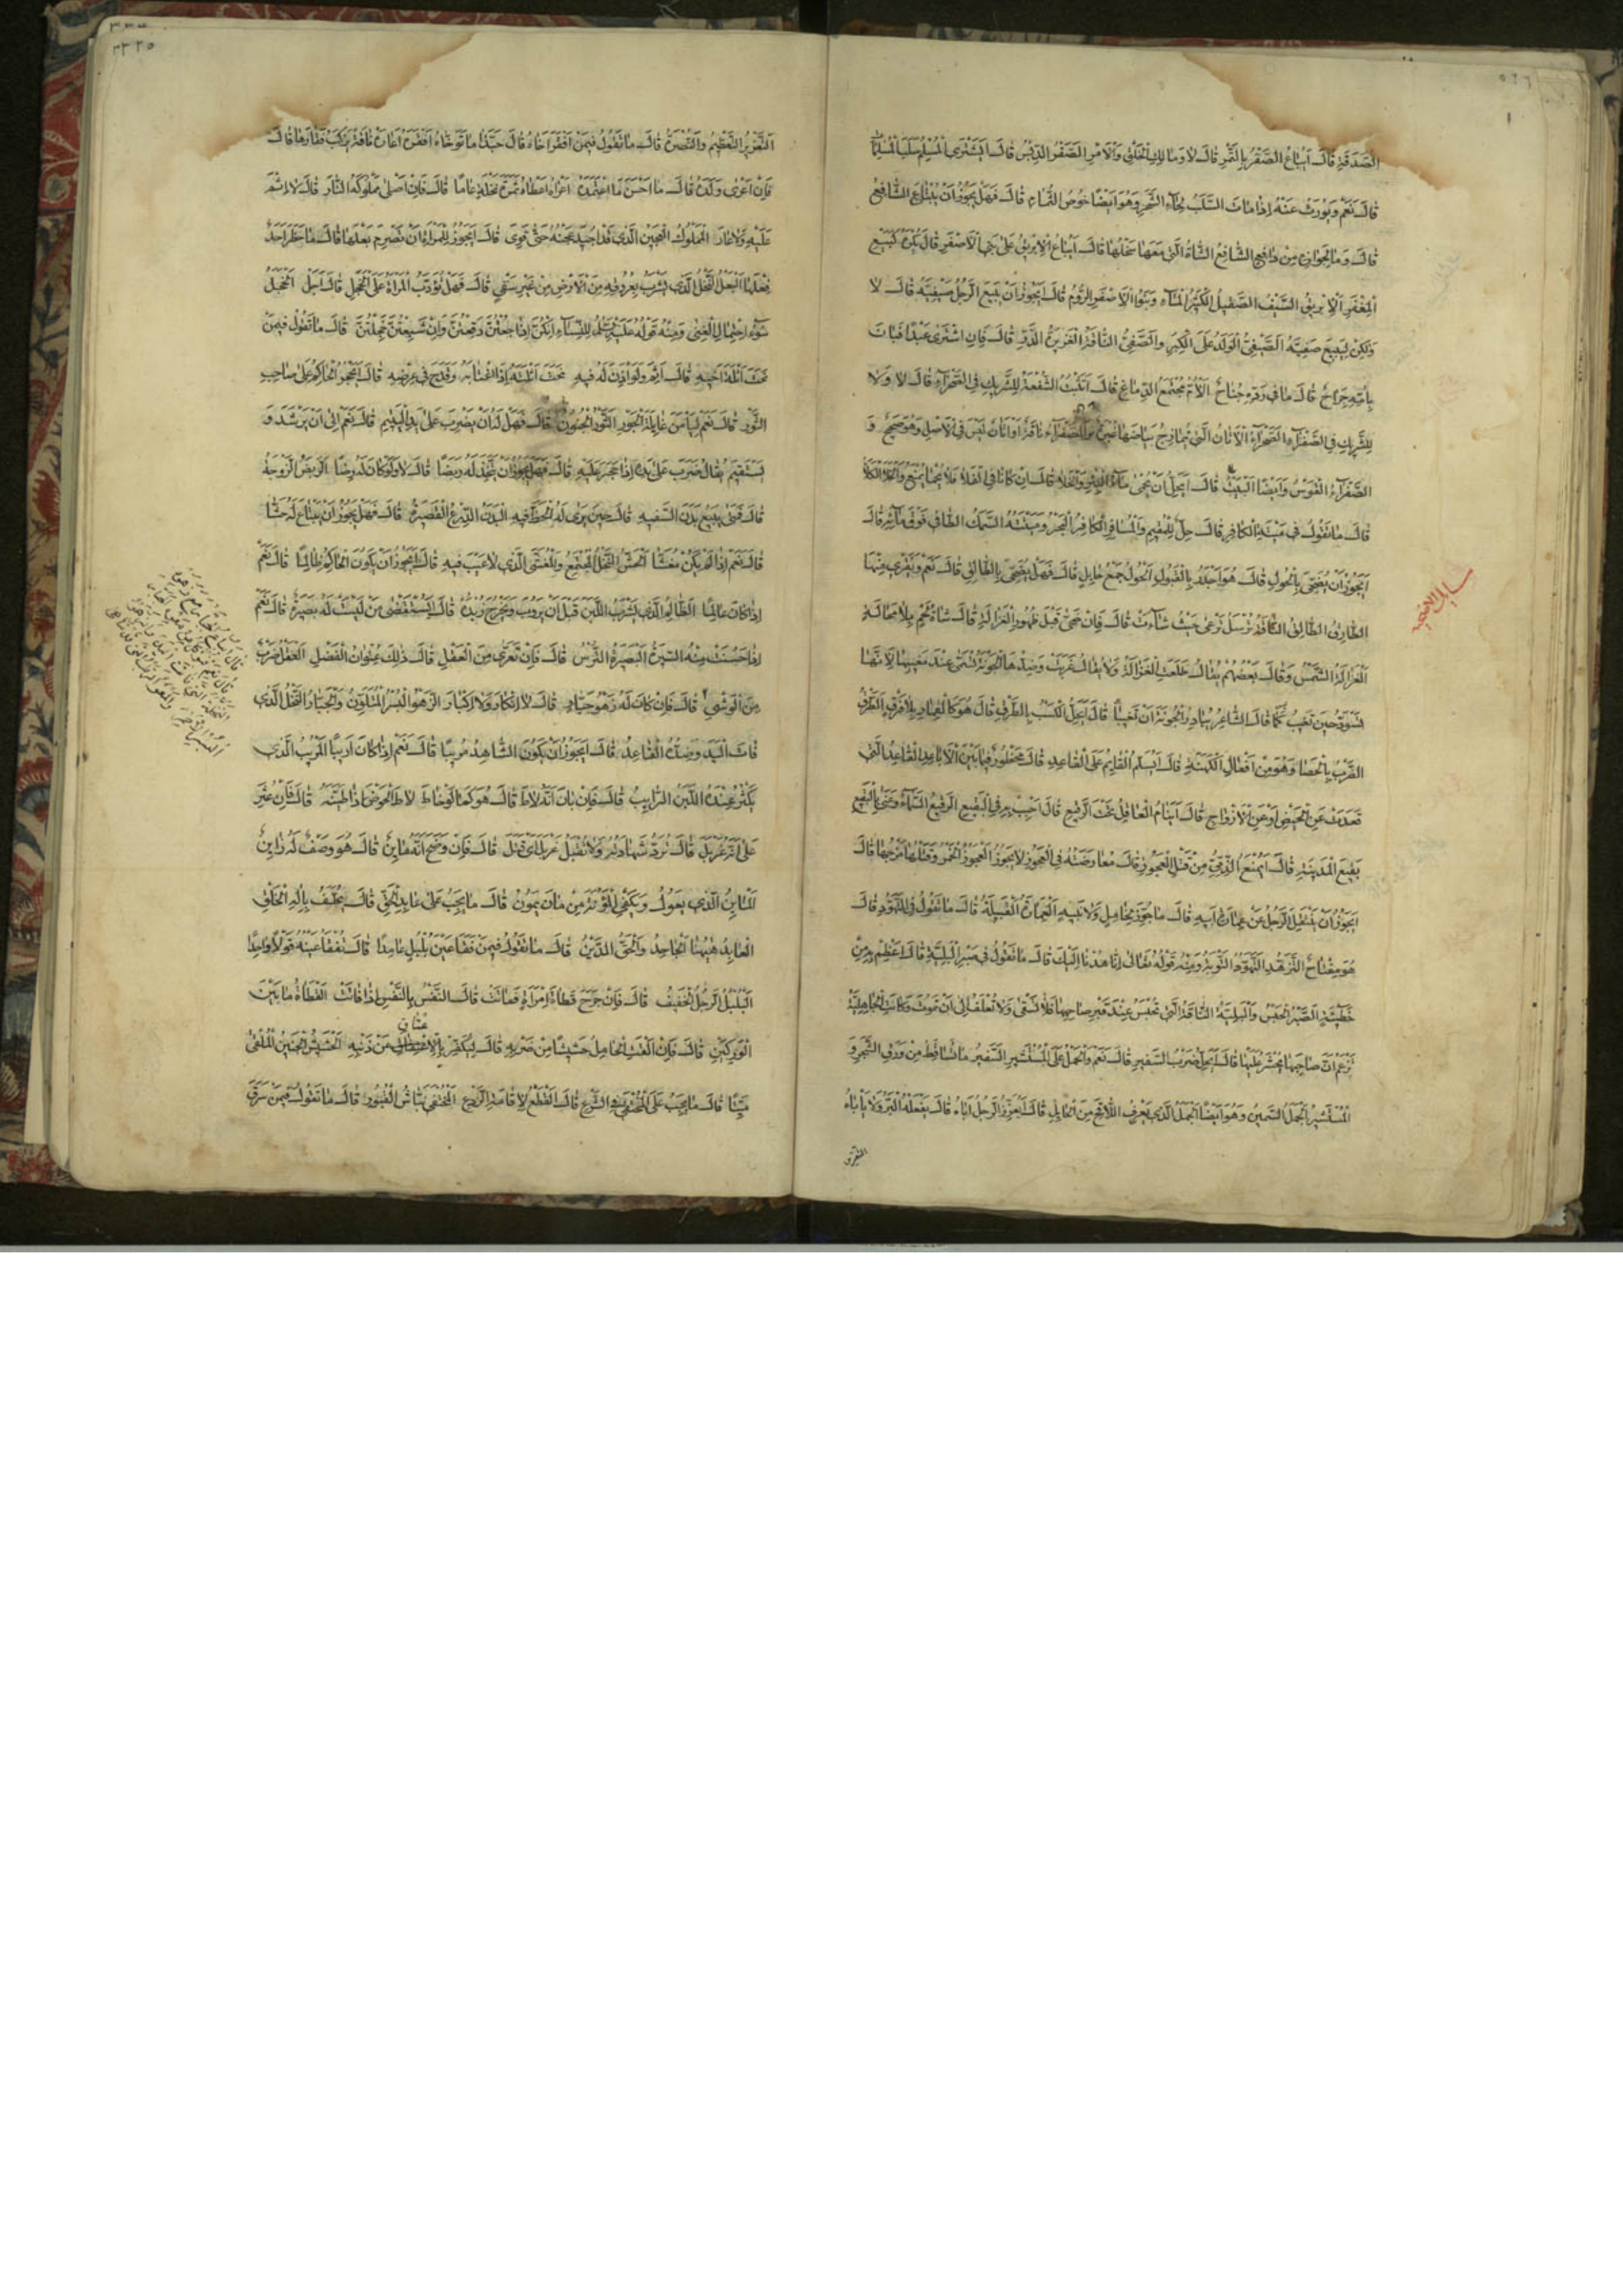 الصَّدَقَةِ قَالَ أَيُبَاعُ الصَّقْرُ بِالتَّمْرِ قَالَ لَا وَمَالِكِ الْخَلْقِ وَالْأَمْرِ الصَّقْرُ الدِّبْسُ قَالَ أَيَشْتَرِي الْمُسْلِمُ سَلَبَ الْمُسْلِمَاتِ
قَالَ نَعَمْ وَيُورَثُ عَنْهُ إِذَا مَاتَ السَّلَبُ لِحَاءُ الشَّجَرِ وَهُوَ أَيْضًا خُوصُ الثُّمَامِ قَالَ فَهَلْ يَجُوزُ أَنْ يُبْتَاعَ الشَّافِعُ
قَالَ وَمَا لِجَوَازِهِ مِنْ دَافِعٍ الشَّافِعُ الشَّاةُ الَّتِي مَعَهَا سَخْلُهَا قَالَ أَيُبَاعُ الْإِبْرِيقُ عَلَى بَنِي الْأَصْفَرِ قَالَ يُكْرَهُ كَبَيْعِ
الْمِغْفَرِ الْإِبْرِيقُ السَّيْفُ الصَّقِيلُ الْكَثِيرُ الْمَاءِ وَبَنُو الْأَصْفَرِ الرُّومُ قَالَ أَيَجُوزُ أَنْ يَبِيعَ الرَّجُلُ صَيْفِيَّهُ قَالَ لَا
وَلَكِنْ لِيَبِيعَ صَفِيَّهُ الصَّيْفِيُّ الْوَلَدُ عَلَى الْكِبَرِ وَالصَّفِيُّ النَّاقَةُ الْغَزِيرَةُ الدَّرِّ قَالَ فَإِنِ اشْتَرَى عَبْدًا فَبَانَ
بِأُمِّهِ جِرَاحٌ قَالَ مَا فِي رَدِّهِ جُنَاحٌ الْأُمُّ مُجْتَمَعُ الدِّمَاغِ قَالَ أَتَثْبُتُ الشُّفْعَةُ لِلشَّرِيكِ فِي الصَّحْرَاءِ قَالَ لَا وَلَا
لِلشَّرِيكِ فِي الصَّفْرَاءِ الصَّحْرَاءُ الْأَتَانُ الَّتِي يُمَازِجُ بَيَاضَهَا غُبْرَةٌ وَ
قَالَ مَا تَقُولُ فِي مَيْتَةِ الْكَافِرِ قَالَ حِلٌّ لِلْمُقِيمِ وَالْمُسَافِرِ الْكَافِرُ الْبَحْرُ وَمَيْتَتُهُ السَّمَكُ الطَّافِي فَوْقَ مَائِهِ قَالَ
أَيَجُوزُ أَنْ يُضَحَّى بِالْحُولِ قَالَ هُوَ أَجْدَرُ بِالْقَبُولِ الْحُولُ جَمْعُ حَائِلٍ قَالَ فَهَلْ يُضَحَّى بِالطَّالِقِ قَالَ نَعَمْ وَيُقْرَى مِنْهَا
الطَّارِقُ الطَّالِقُ النَّاقَةُ تُرْسَلُ تَرْعَى حَيْثُ شَاءَتْ قَالَ فَإِنْ ضَحَّى قَبْلَ ظُهُورِ الْغَزَالَةِ قَالَ شَاةُ لَحْمٍ بِلَا مَحَالَةٍ
الْغَزَالَةُ الشَّمْسُ وَقَالَ بَعْضُهُمْ يُقَالُ طَلَعَتِ الْغَزَالَةُ وَلَا يُقَالُ غَرَبَتْ وَضِدُّهَا الْجَوْنَةُ تُسَمَّى عِنْدَ مَغِيبِهَا لِأَنَّهَا
تَسْوَدُّ حِينَ تَغِيبُ كَمَا قَالَ الشَّاعِرُ يُبَادِرُ الْجَوْنَةَ أَنْ تَغِيبَا قَالَ أَيَحِلُّ الْكَسْبُ بِالطَّرْقِ قَالَ هُوَ كَالْقِمَارِ بِلَا فَرْقٍ الطَّرْقُ
الضَّرْبُ بِالْحَصَا وَهُوَ مِنْ أَفْعَالِ الْكَهَنَةِ قَالَ أَيُسَلِّمُ الْقَائِمُ عَلَى الْقَاعِدِ قَالَ مَحْظُورٌ فِيمَا بَيْنَ الْأَبَاعِدِ الْقَاعِدُ الَّتِي
قَعَدَتْ عَنِ الْحَيْضِ أَوْ عَنِ الْأَزْوَاجِ قَالَ أَيَنَامُ الْعَاقِلُ تَحْتَ الرَّقِيعِ قَالَ أَحْبِبْ بِهِ فِي الْبَقِيعِ الرَّقِيعُ السَّمَاءُ وَعَنَى بِالْبَقِيعِ
بَقِيعَ الْمَدِينَةِ قَالَ أَيُمْنَعُ الذِّمِّيُّ مِنْ قَتْلِ الْعَجُوزِ قَالَ مُعَارَضَتُهُ فِي الْعَجُوزِ لَا يَجُوزُ الْعَجُوزُ الْخَمْرُ وَقَتْلُهَا مَزْجُهَا قَالَ
أَيَجُوزُ أَنْ يَنْتَقِلَ الرَّجُلُ عَنْ عِمَارَةِ أَبِيهِ قَالَ مَا جُوِّزَ لِخَامِلٍ وَلَا نَبِيهٍ الْعِمَارَةُ الْقَبِيلَةُ قَالَ مَا تَقُولُ فِي التَّهَوُّدِ قَالَ
هُوَ مِفْتَاحُ التَّزَهُّدِ التَّهَوُّدُ التَّوْبَةُ وَمِنْهُ قَوْلُهُ تَعَالَى إِنَّا هُدْنَا إِلَيْكَ قَالَ مَا تَقُولُ فِي صَبْرِ الْبَلِيَّةِ قَالَ أَعْظِمْ بِهِ مِنْ
خَطِيَّةٍ الصَّبْرُ الْحَبْسُ وَالْبَلِيَّةُ النَّاقَةُ الَّتِي تُحْبَسُ عِنْدَ قَبْرِ صَاحِبِهَا فَلَا تُسْقَى وَلَا تُعْلَفُ إِلَى أَنْ تَمُوتَ وَكَانَتِ الْجَاهِلِيَّةُ
تَزْعُمُ أَنَّ صَاحِبَهَا يُحْشَرُ عَلَيْهَا قَالَ أَيَحِلُّ ضَرْبُ السَّفِيرِ قَالَ نَعَمْ وَالْحَمْلُ عَلَى الْمُسْتَشِيرِ السَّفِيرُ مَا تَسَاقَطَ مِنْ وَرَقِ الشَّجَرِ وَ
الْمُسْتَشِيرُ الْجَمَلُ السَّمِينُ وَهُوَ أَيْضًا الْجَمَلُ الَّذِي يَعْرِفُ اللَّاقِحَ مِنَ الْحَائِلِ قَالَ أَيُعَزِّرُ الرَّجُلُ أَبَاهُ قَالَ يَفْعَلُهُ الْبَرُّ وَلَا يَأْبَاهُ
التَّعْزِيرُ التَّعْظِيمُ وَالنُّصْرَةُ قَالَ مَا تَقُولُ فِيمَنْ أَفْقَرَ أَخَاهُ قَالَ حَبَّذَا مَا تَوَخَّاهُ أَفْقَرَهُ أَعَارَهُ نَاقَةً يَرْكَبُ فَقَارَهَا قَالَ
فَإِنْ أَعْرَى وَلَدَهُ قَالَ مَا أَحْسَنَ مَا اعْتَمَدَهُ أَعْرَاهُ أَعْطَاهُ ثَمَرَةَ نَخْلَةٍ عَامًا قَالَ فَإِنْ أَصْلَى مَمْلُوكَهُ النَّارَ قَالَ لَا إِثْمَ
عَلَيْهِ وَلَا عَارَ الْمَمْلُوكُ الْعَجِينُ الَّذِي قَدْ أُجِيدَ عَجْنُهُ حَتَّى قَوِيَ قَالَ أَيَجُوزُ لِلْمَرْأَةِ أَنْ تَصْرِمَ بَعْلَهَا قَالَ مَا حَظَرَ أَحَدٌ
فِعْلَهَا الْبَعْلُ النَّخْلُ الَّذِي يَشْرَبُ بِعُرُوقِهِ مِنَ الْأَرْضِ مِنْ غَيْرِ سَقْيٍ قَالَ فَهَلْ تُؤَدَّبُ الْمَرْأَةُ عَلَى الْخَجَلِ قَالَ أَجَلْ الْخَجَلُ
سُوءُ احْتِمَالِ الْغِنَى وَمِنْهُ قَوْلُهُ عَلَيْهِ السَّلَامُ لِلنِّسَاءِ إِنَّكُنَّ إِذَا جُعْتُنَّ دَقِعْتُنَّ وَإِنْ شَبِعْتُنَّ خَجِلْتُنَّ قَالَ مَا تَقُولُ فِيمَنْ
نَحَتَ أَثْلَةَ أَخِيهِ قَالَ أَثِمَ وَلَوْ أَذِنَ لَهُ فِيهِ نَحَتَ أَثْلَتَهُ إِذَا اغْتَابَهُ وَقَدَحَ فِي عِرْضِهِ قَالَ أَيَحْجُرُ الْحَاكِمُ عَلَى صَاحِبِ
الثَّوْرِ قَالَ نَعَمْ لِيَأْمَنَ غَائِلَةَ الْجَوْرِ الثَّوْرُ الْجُنُونُ قَالَ فَهَلْ لَهُ أَنْ يَضْرِبَ عَلَى يَدِ الْيَتِيمِ قَالَ نَعَمْ إِلَى أَنْ يَرْشُدَ وَ
يَسْتَقِيمَ يُقَالُ ضَرَبَ عَلَى يَدِهِ إِذَا حَجَرَ عَلَيْهِ قَالَ فَهَلْ يَجُوزُ أَنْ يَتَّخِذَ لَهُ رَبَضًا قَالَ لَا وَلَوْ كَانَ لَهُ رِضًا الرَّبَضُ الزَّوْجَةُ
قَالَ فَمَتَى يَبِيعُ بَدَنَ السَّفِيهِ قَالَ حِينَ يَرَى لَهُ الْحَظَّ فِيهِ الْبَدَنُ الدِّرْعُ الْقَصِيرَةُ قَالَ فَهَلْ يَجُوزُ أَنْ يَبْتَاعَ لَهُ حَشًّا
قَالَ نَعَمْ إِذَا لَمْ يَكُنْ مُغَشًّى الْحَشُّ النَّخْلُ الْمُجْتَمِعُ قَالَ أَيَجُوزُ أَنْ يَكُونَ الْحَاكِمُ ظَالِمًا قَالَ نَعَمْ
إِذَا كَانَ عَالِمًا الظَّالِمُ الَّذِي يَشْرَبُ اللَّبَنَ قَبْلَ أَنْ يَرُوبَ وَيُخْرَجَ زُبْدُهُ قَالَ أَيُسْتَقْضَى مَنْ لَيْسَتْ لَهُ بَصِيرَةٌ قَالَ نَعَمْ
إِذَا حَسُنَتْ مِنْهُ السِّيرَةُ الْبَصِيرَةُ التُّرْسُ قَالَ فَإِنْ تَعَرَّى مِنَ الْعَقْلِ قَالَ ذَلِكَ عُنْوَانُ الْفَضْلِ الْعَقْلُ ضَرْبٌ
مِنَ الْوَشْيِ قَالَ فَإِنْ كَانَ لَهُ زَهْوُ جَبَّارٍ قَالَ لَا إِنْكَارَ وَلَا إِكْبَارَ الزَّهْوُ الْبُسْرُ الْمُتَلَوِّنُ وَالْجَبَّارُ النَّخْلُ الَّذِي
فَاتَ الْيَدَ وَضِدُّهُ الْقَاعِدُ قَالَ أَيَجُوزُ أَنْ يَكُونَ الشَّاهِدُ مُرِيبًا قَالَ نَعَمْ إِذَا كَانَ أَرِيبًا الْمُرِيبُ الَّذِي
يَكْثُرُ عِنْدَهُ اللَّبَنُ الرَّائِبُ قَالَ فَإِنْ بَانَ أَنَّهُ لَاطَ قَالَ هُوَ كَمَا لَوْ خَاطَ لَاطَ الْحَوْضَ إِذَا طَيَّنَهُ قَالَ فَإِنْ عُثِرَ
عَلَى أَنَّهُ غَرْبَلَ قَالَ تُرَدُّ شَهَادَتُهُ وَلَا تُقْبَلُ غَرْبَلَ أَيْ قَتَلَ قَالَ فَإِنْ وَضَحَ أَنَّهُ مَائِنٌ قَالَ هُوَ وَصْفٌ لَهُ زَائِنٌ
الْمَائِنُ الَّذِي يَعُولُ وَيَكْفِي الْمَؤُونَةَ مِنْ مَانَ يَمُونُ قَالَ مَا يَجِبُ عَلَى عَابِدِ الْحَقِّ قَالَ يُحَلَّفُ بِإِلَهِ الْخَلْقِ
الْعَابِدُ هٰهُنَا الْجَاحِدُ وَالْحَقُّ الدَّيْنُ قَالَ مَا تَقُولُ فِيمَنْ فَقَأَ عَيْنَ بُلْبُلٍ عَامِدًا قَالَ تُفْقَأُ عَيْنُهُ قَوْلًا وَاحِدًا
الْبُلْبُلُ الرَّجُلُ الْخَفِيفُ قَالَ فَإِنْ جَرَحَ قَطَاةَ امْرَأَةٍ فَمَاتَتْ قَالَ النَّفْسُ بِالنَّفْسِ إِذَا فَاتَتْ الْقَطَاةُ مَا بَيْنَ
الْوَرِكَيْنِ قَالَ فَإِنْ أَلْقَتِ الْحَامِلُ حَشِيشًا مِنْ ضَرْبِهِ قَالَ لِيُكَفِّرْ بِالْإِعْتَاقِ عَنْ ذَنْبِهِ الْحَشِيشُ الْجَنِينُ الْمُلْقَى
مَيِّتًا قَالَ مَا يَجِبُ عَلَى الْمُخْتَفِي فِي الشَّرْعِ قَالَ الْقَطْعُ لِإِقَامَةِ الرَّدْعِ الْمُخْتَفِي نَبَّاشُ الْقُبُورِ قَالَ مَا تَقُولُ فِيمَنْ سَرَقَ